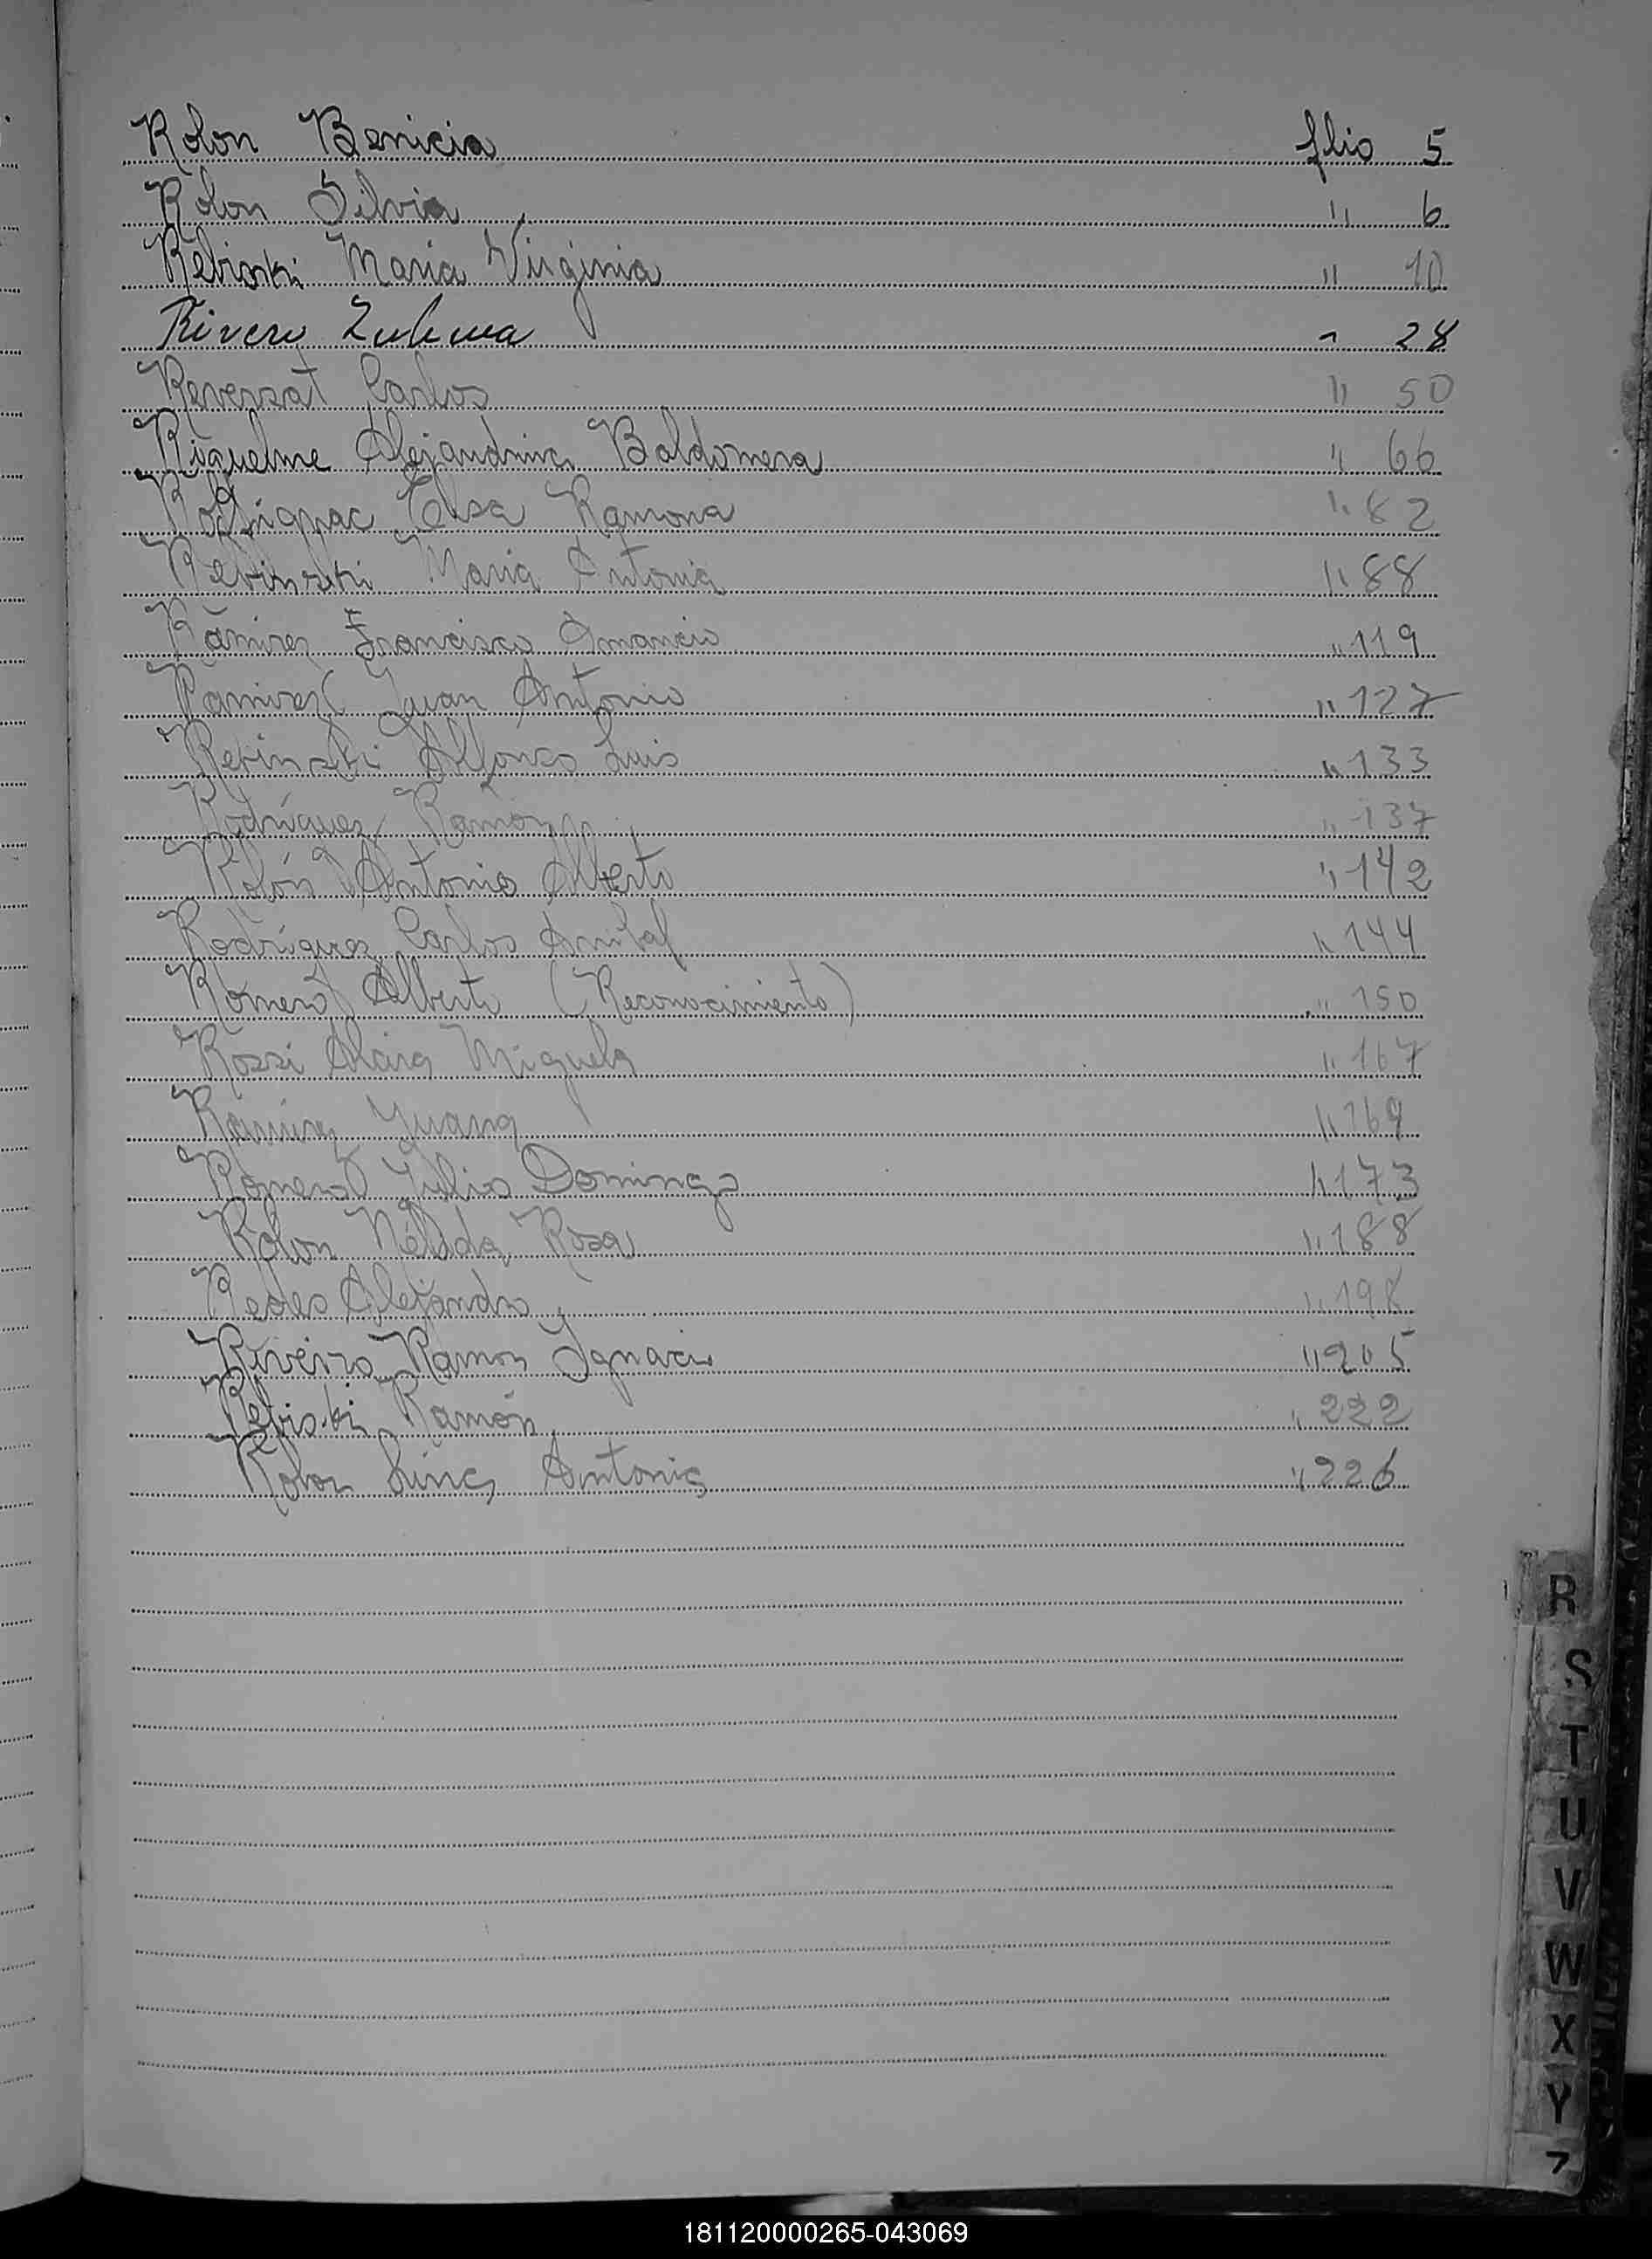 Rolon Benicia flio 5
Rolon Silvia " 6
Rebinski Maria Virginia " 10
Rivero Zulma " 28
Reversat Carlos " 50
Riquelme Alejandrina Baldomera " 66
Elsa Ramona " 82
Rebinski Maria Antonia " 88
Ramirez Francisco Amancio " 119
Ramirez Juan Antonio " 127
Rebinski Alfonso Luis " 133
Rodríguez Ramón " 137
Rolón Antonio Alberto " 142
Rodríguez Carlos Anibal " 144
Romero Alberto (Reconocimiento) " 150
Rossi Miguela " 167
Ramirez Juana " 169
Romero Julio Domingo " 173
Rolon Nélida Rosa " 188
Alejandro " 198
Riveiro Ramon Ignacio " 205
Rebiski Ramón " 222
Rolon Antonia " 226
R
S
T
U
V
W
X
Y
Z
181120000265-043069